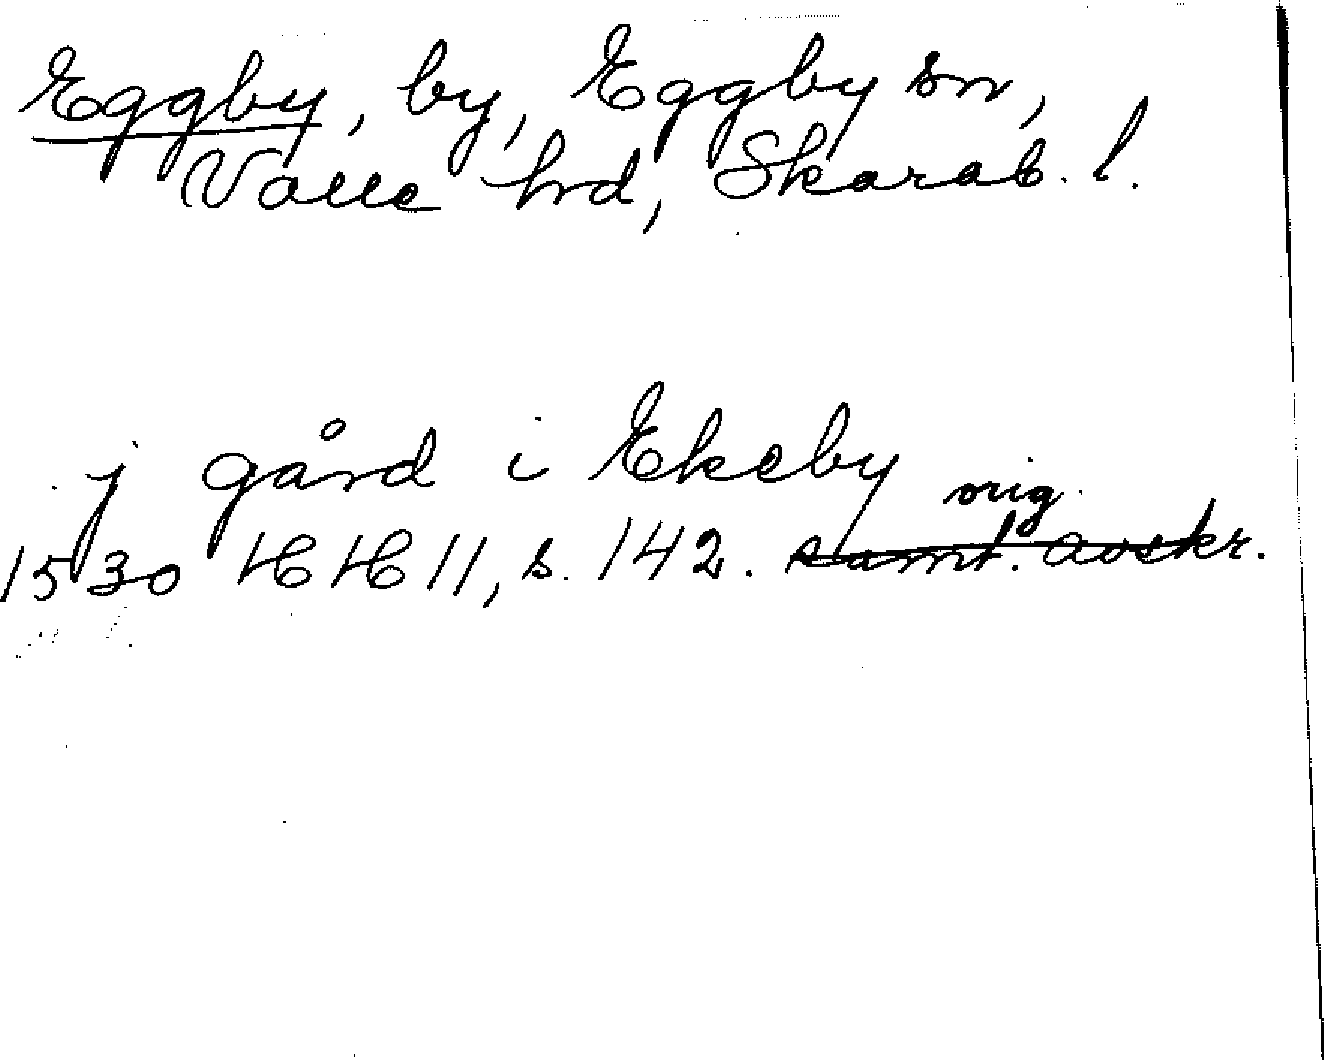 Eggby, by, Eggby sn,
Valle hd, Skarab. l.
j gård i Ekeby
orig.
1530 HH 11, s. 142. samt. avskr.